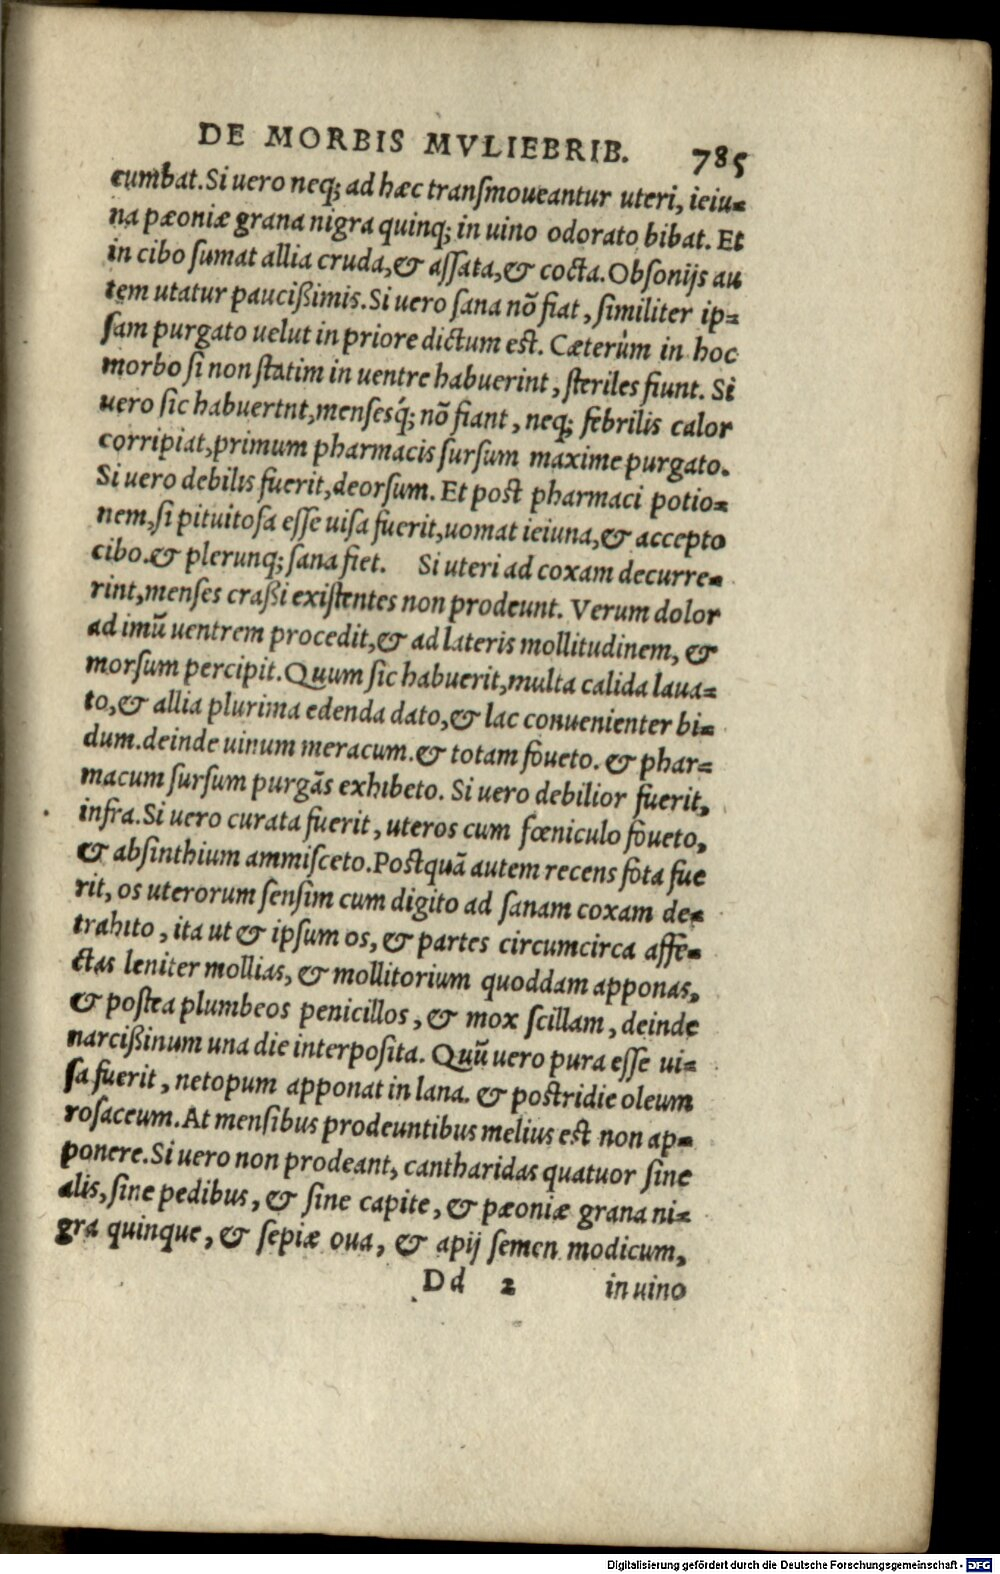 DE MORBIS MVLIEBRIB. 785
cumbat. Si uero neq; ad hæc transmoueantur uteri, ieiu-
na pæoniæ grana nigra quinq; in uino odorato bibat. Et
in cibo ſumat allia cruda, & aſſata, & cocta. Obſonijs au
tem utatur pauciſsimis. Si uero ſana nõ fiat, ſimiliter ip-
ſam purgato uelut in priore dictum est. Cæterùm in hoc
morbo ſi non ſtatim in uentre habuerint, ſteriles fiunt. Si
uero ſic habuertnt, menſesq́; nõ fiant, neq; febrilis calor
corripiat, primum pharmacis ſurſum maxime purgato.
Si uero debilis fuerit, deorſum. Et poſt pharmaci potio-
nem, ſi pituitoſa eſſe uiſa fuerit, uomat ieiuna, & accepto
cibo. & plerunq; ſana fiet. Si uteri ad coxam decurre-
rint, menſes craſsi exiſtentes non prodeunt. Verum dolor
ad imũ uentrem procedit, & ad lateris mollitudinem, &
morſum percipit. Quum ſic habuerit, multa calida laua-
to, & allia plurima edenda dato, & lac conuenienter bi-
dum. deinde uinum meracum. & totam foueto. & phar-
macum ſurſum purgãs exhibeto. Si uero debilior fuerit,
infra. Si uero curata fuerit, uteros cum fœniculo foueto,
& abſinthium ammiſceto. Poſtquã autem recens fota fue
rit, os uterorum ſenſim cum digito ad ſanam coxam de-
trahito, ita ut & ipſum os, & partes circumcirca affe-
ctas leniter mollias, & mollitorium quoddam apponas,
& poſtea plumbeos penicillos, & mox ſcillam, deinde
narciſsinum una die interpoſita. Quũ uero pura eſſe ui-
ſa fuerit, netopum apponat in lana. & poſtridie oleum
roſaceum. At menſibus prodeuntibus melius est non ap-
ponere. Si uero non prodeant, cantharidas quatuor ſine
alis, ſine pedibus, & ſine capite, & pæoniæ grana ni-
gra quinque, & ſepiæ oua, & apij ſemen modicum,
Dd 2 in uino
Digitalisierung gefördert durch die Deutsche Forschungsgemeinschaft - DFG